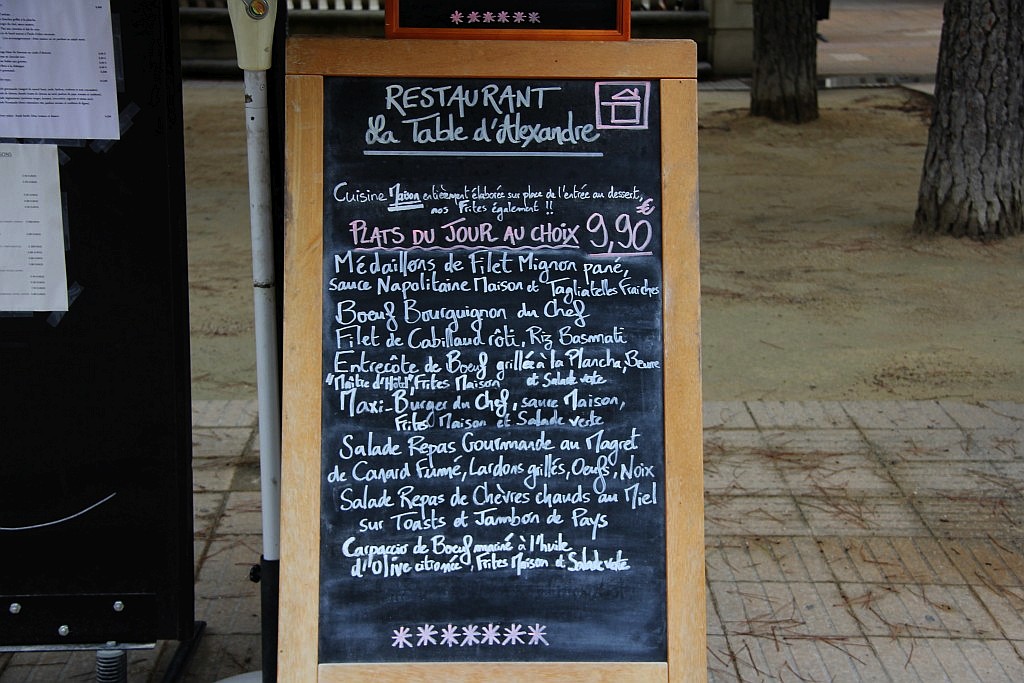 RESTAURANT
La Table d'Alexandre
Cuisine Maison entièrement élaborée sur place de l'entrée au dessert,
nos Frites également !!
PLATS DU JOUR AU CHOIX 9,90 €
Médaillons de Filet Mignon pané,
sauce Napolitaine Maison et Tagliatelles Fraiches
Boeuf Bourguignon du Chef
Filet de Cabillaud rôti, Riz Basmati
Entrecôte de Boeuf grillée à la Plancha, Beurre
"Maître d'Hôtel", Frites Maison et Salade verte
Maxi-Burger du Chef, sauce Maison,
Frites Maison et Salade verte
Salade Repas Gourmande au Magret
de Canard Fumé, Lardons grillés, Oeufs, Noix
Salade Repas de Chèvres chauds au Miel
sur Toasts et Jambon de Pays
Carpaccio de Boeuf mariné à l'huile
d'Olive citronée, Frites Maison et Salade verte